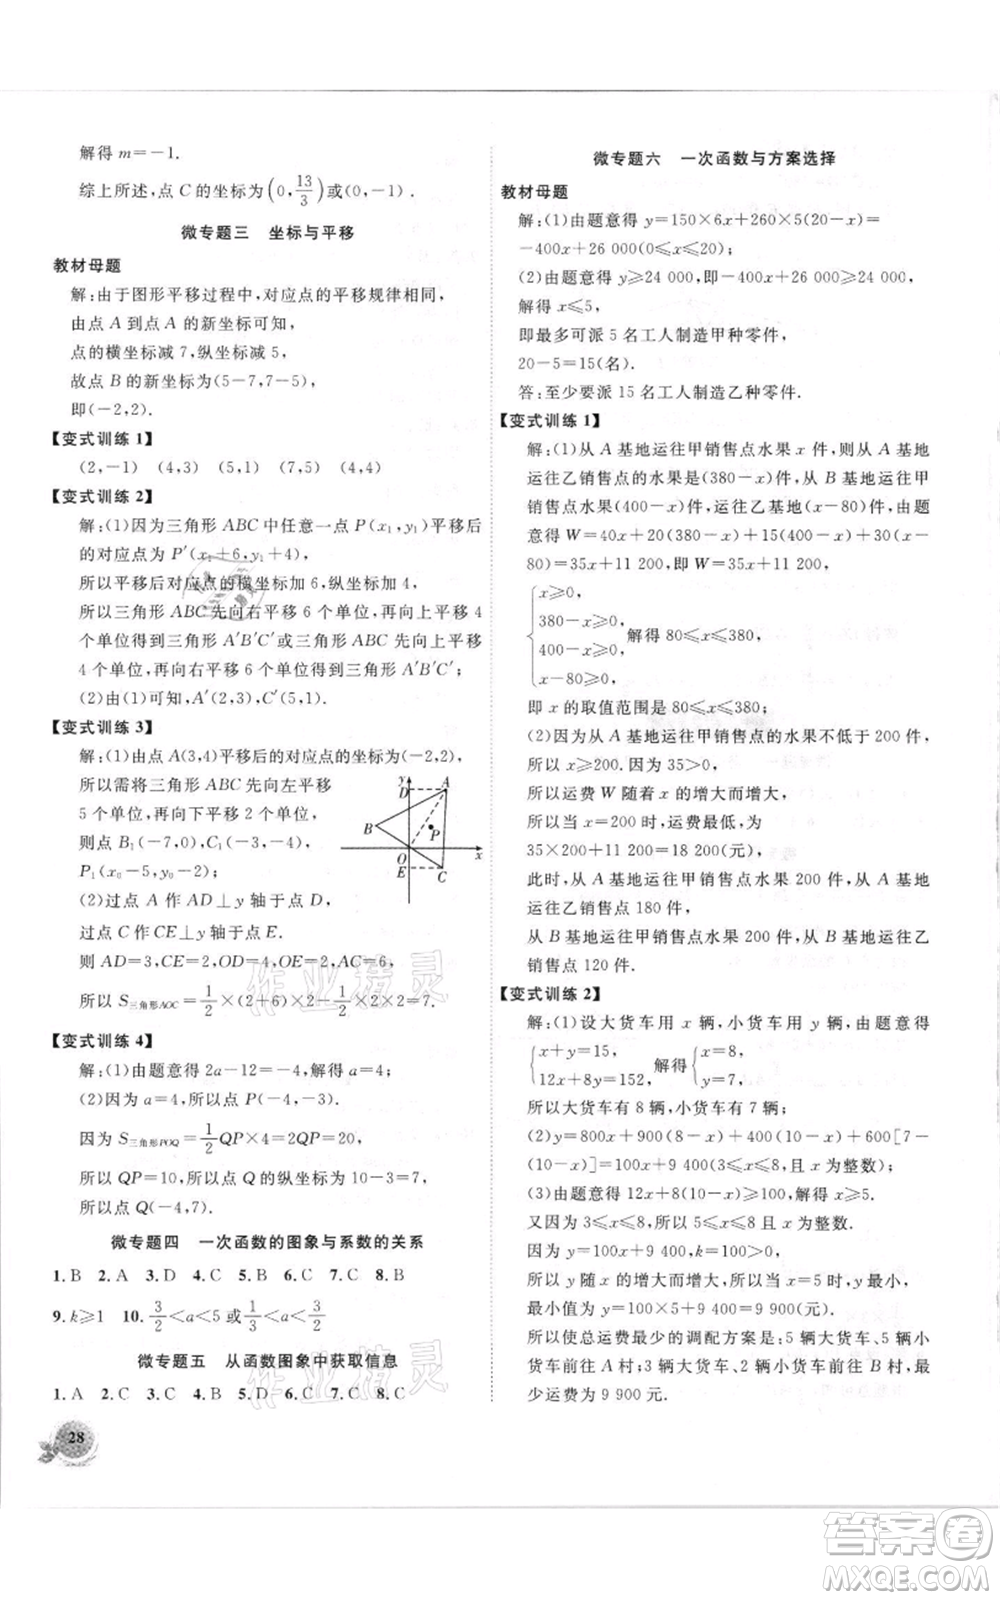 解得 m=-1.
综上所述,点 C 的坐标为(0,13/3)或(-1,0).
微专题三　坐标与平移
教材母题
解:由于图形平移过程中,对应点的平移规律相同,
由点 A 到点 A 的新坐标可知,
点的横坐标减 7,纵坐标减 5,
故点 B 的新坐标为(5-7,7-5),
即(-2,2).
【变式训练 1】
(2,-1)　(4,3)　(5,1)　(7,5)　(4,4)
【变式训练 2】
解:(1)因为三角形 ABC 中任意一点 P(x₁,y₁)平移后
的对应点为 P′(x₁+6,y₁+4),
所以平移后对应点的横坐标加 6,纵坐标加 4,
所以三角形 ABC 先向右平移 6 个单位,再向上平移 4
个单位得到三角形 A′B′C′或三角形 ABC 先向上平移
4 个单位,再向右平移 6 个单位得到三角形 A′B′C′;
(2)由(1)可知,A′(2,3),C′(5,1).
【变式训练 3】
解:(1)由点 A(3,4)平移后的对应点的坐标为(-2,2),
所以需将三角形 ABC 先向左平移
5 个单位,再向下平移 2 个单位,
则点 B₁(-7,0),C₁(-3,-3),
P₁(x₀-5,y₀-2);
(2)过点 A 作 AD⊥y 轴于点 D,
过点 C 作 CE⊥y 轴于点 E.
y
D
A
B
P
O
x
E
C
则 AD=3,CE=2,OD=4,OE=2,AC=6,
所以 S三角形AOC=1/2×(2+6)×2+1/2×2×4=7,
【变式训练 4】
解:(1)由题意得 2a-12=-4,所以 a=4;
(2)因为 a=4,所以点 P(-4,-3).
因为 S三角形POQ=1/2QP×4=2QP=20,
所以 QP=10,所以点 Q 的纵坐标为 10-3=7,
所以点 Q(-4,7).
微专题四　一次函数的图象与系数的关系
1. B　2. A　3. D　4. C　5. B　6. C　7. C　8. B
9. k≥1　10. 3/2<a<5 或 1/3<a<3/2
微专题五　从函数图象中获取信息
1. A　2. C　3. C　4. C　5. C　6. B　7. A　8. C
28
微专题六　一次函数与方案选择
教材母题
解:(1)由题意得 y=150×6x+260×5(20-x)=
-400x+26 000(0≤x≤20);
(2)由题意得 y≥24 000,即-400x+26 000≥24 000,
解得 x≤5,
即最多可派 5 名工人制造甲种零件,
20-5=15(名).
答:至少要派 15 名工人制造乙种零件.
【变式训练 1】
解:(1)从 A 基地运往甲销售点水果 x 件,则从 A 基地
运往乙销售点的水果是(380-x)件,从 B 基地运往甲
销售点水果(400-x)件,运往乙(x-80)件,由题
意得 W=40x+20(380-x)+15(400-x)+30(x-80)
=35x+11 200,即 W=35x+11 200,
x≥0,
380-x≥0,
400-x≥0,
x-80≥0,
解得 80≤x≤380,
即 x 的取值范围是 80≤x≤380;
(2)因为 A 基地运往甲销售点的水果不低于 200 件,
所以 x≥200.因为 35>0,
所以运费 W 随着 x 的增大而增大,
所以当 x=200 时,运费最低,为
35×200+11 200=18 200(元),
此时,从 A 基地运往甲销售点水果 200 件,从 A 基地
运往乙销售点 180 件,
从 B 基地运往甲销售点水果 200 件,从 B 基地运往乙
销售点 120 件.
【变式训练 2】
解:(1)设大货车用 x 辆,小货车用 y 辆,由题意得
x+y=15,
12x+8y=152,
解得
x=8,
y=7,
所以大货车有 8 辆,小货车有 7 辆;
(2)y=800x+900(8-x)+400(10-x)+600[7-
(10-x)]=100x+9 400(3≤x≤8,且 x 为整数);
(3)由题意得 12x+8(10-x)≥100,解得 x≥5.
又因为 3≤x≤8,所以 5≤x≤8,且 x 为整数.
因为 y=100x+9 400,100>0,y 随 x 的增大而增大,
所以当 x=5 时,y 最小,
最小值为 y=100×5+9 400=9 900(元),
所以使总运费最少的调配方案是:5 辆大货车、5 辆小
货车前往 A 村;3 辆大货车、2 辆小货车前往 B 村,最
少运费为 9 900 元.
作业精灵
作业精灵
答案卷
MXQE.COM